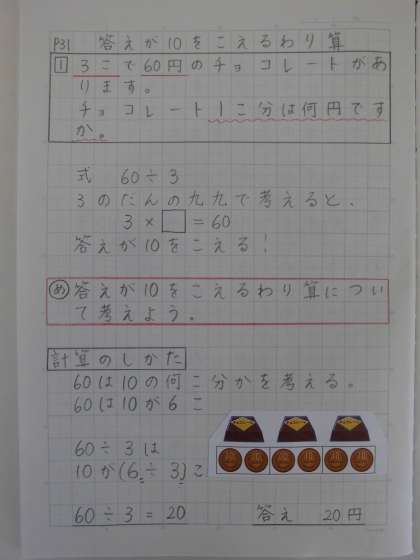 P31 答えが10をこえるわり算
1 3こで60円のチョコレートがあ
ります。
チョコレート1こ分は何円です
か。
式 60÷3
3のだんの九九で考えると、
3×□=60
答えが10をこえる!
め 答えが10をこえるわり算につい
て考えよう。
計算のしかた
60は10の何こ分かを考える。
60は10が6こ
60÷3は
10が(6÷3)こ
60÷3=20 答え 20円